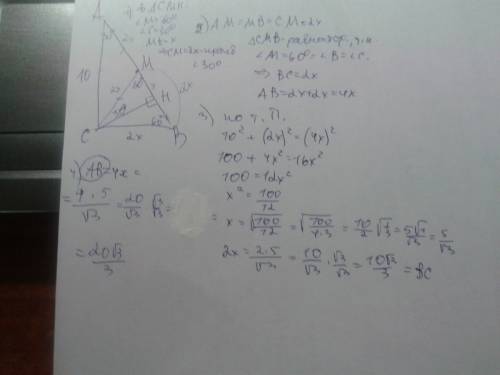 A
10
C
M
H
B
2x
2x
60°
1) В △CMH:
∠M=60°
∠C=30°
MH=x
∠30°
2) AM=MB=CM=2x
△CMB-равностор., т.к.
∠M=60°=∠B=∠C.
⇒ BC=2x
AB=2x+2x=4x
3) по т. П.
10²+(2x)²=(4x)²
100+4x²=16x²
100=12x²
x²=100/12
x=√(100/12)=√(100/4·3)=10/2√(1/3)=5√1/√3=5/√3
2x=2·5/√3=10/√3·√3/√3=10√3/3=BC
4) AB=4x=
=4·5/√3=20/√3 √3/√3=
=20√3/3